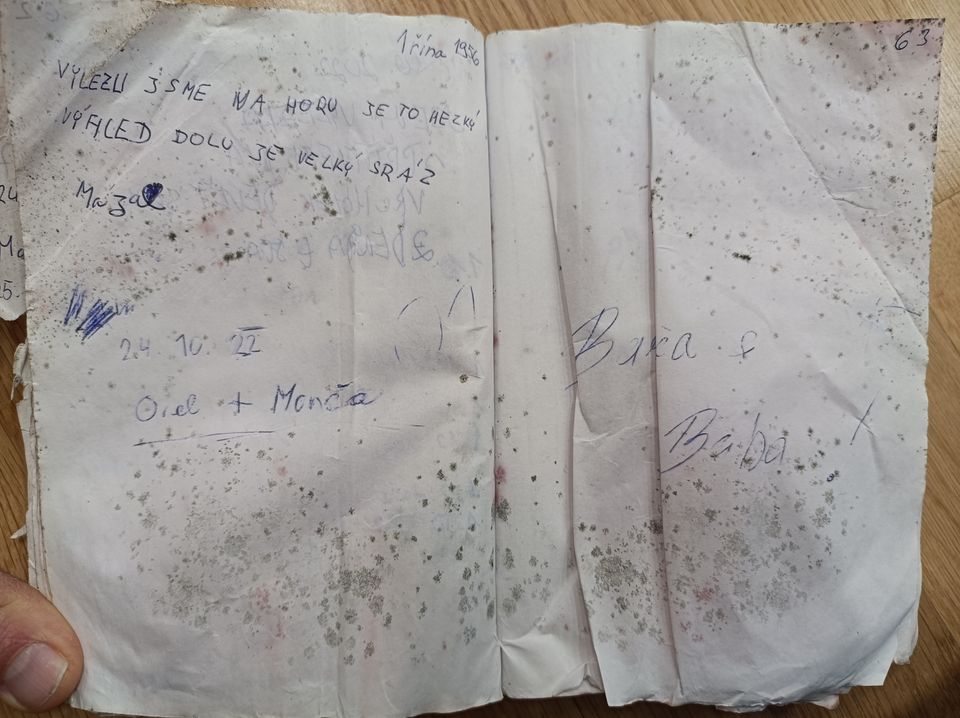 1 řína 1956
VÝLEZLI JSME NA HORU JE TO HEZKÝ
VÝHLED DOLU JE VELKÝ SRÁZ
24. 10. 22
Orel + Monča
63
Baba
24
Ma
25.